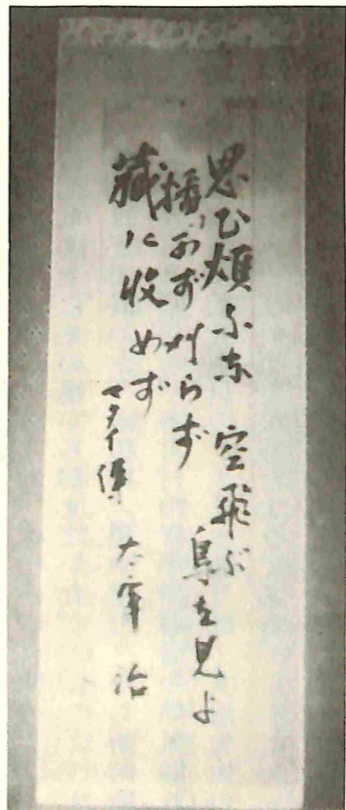 思ひ煩ふな 空飛ぶ
鳥を見よ
播かず刈らず
藏に收めず
マタイ傳 太宰治